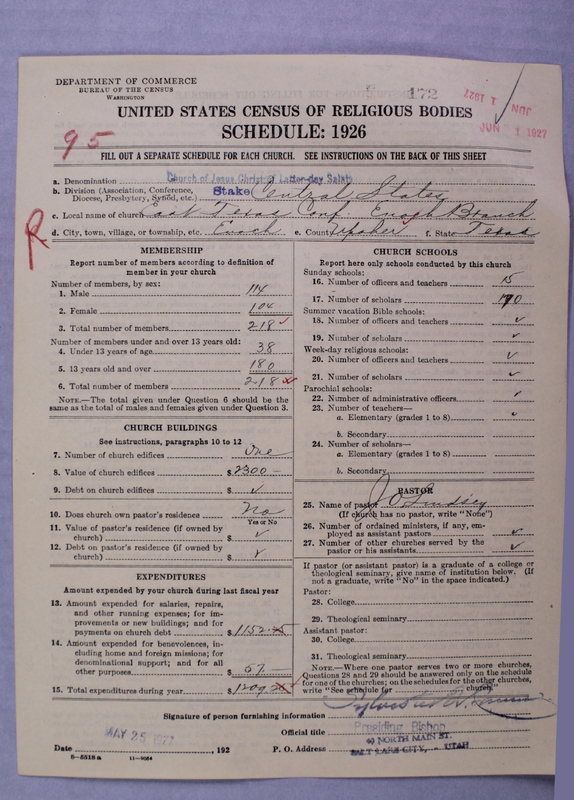 DEPARTMENT OF COMMERCE
BUREAU OF THE CENSUS
WASHINGTON
172
JUN 1 1927
JUN 1 1927
UNITED STATES CENSUS OF RELIGIOUS BODIES
SCHEDULE: 1926
95
FILL OUT A SEPARATE SCHEDULE FOR EACH CHURCH. SEE INSTRUCTIONS ON THE BACK OF THIS SHEET
a. Denomination Church of Jesus Christ of Latter-day Saints
b. Division (Association, Conference, Diocese, Presbytery, Synod, etc.) Stake Central States
c. Local name of church East Texas Conf. Enoch Branch
d. City, town, village, or township, etc. Enoch e. County Upshur f. State Texas
R
MEMBERSHIP
Report number of members according to definition of member in your church
Number of members, by sex:
1. Male 114
2. Female 104
3. Total number of members 218
Number of members under and over 13 years old:
4. Under 13 years of age 38
5. 13 years old and over 180
6. Total number of members 218
NOTE.—The total given under Question 6 should be the same as the total of males and females given under Question 3.
CHURCH BUILDINGS
See instructions, paragraphs 10 to 12
7. Number of church edifices One
8. Value of church edifices $ 2300 —
9. Debt on church edifices $ ✓
10. Does church own pastor's residence No
Yes or No
11. Value of pastor's residence (if owned by church) $ ✓
12. Debt on pastor's residence (if owned by church) $ ✓
EXPENDITURES
Amount expended by your church during last fiscal year
13. Amount expended for salaries, repairs, and other running expenses; for improvements or new buildings; and for payments on church debt $ 1152
14. Amount expended for benevolences, including home and foreign missions; for denominational support; and for all other purposes $ 57 —
15. Total expenditures during year $ 1209
CHURCH SCHOOLS
Report here only schools conducted by this church
Sunday schools:
16. Number of officers and teachers 15
17. Number of scholars
Summer vacation Bible schools:
18. Number of officers and teachers ✓
19. Number of scholars ✓
Week-day religious schools:
20. Number of officers and teachers ✓
21. Number of scholars ✓
Parochial schools:
22. Number of administrative officers ✓
23. Number of teachers—
a. Elementary (grades 1 to 8) ✓
b. Secondary
24. Number of scholars—
a. Elementary (grades 1 to 8)
b. Secondary
PASTOR
25. Name of pastor J O Lindsey
(If church has no pastor, write "None")
26. Number of ordained ministers, if any, employed as assistant pastors ✓
27. Number of other churches served by the pastor or his assistants ✓
If pastor (or assistant pastor) is a graduate of a college or theological seminary, give name of institution below. (If not a graduate, write "No" in the space indicated.)
Pastor:
28. College
29. Theological seminary
Assistant pastor:
30. College
31. Theological seminary
NOTE.—Where one pastor serves two or more churches, Questions 28 and 29 should be answered only on the schedule for one of the churches; on the schedules for the other churches, write "See schedule for church."
Signature of person furnishing information
Official title Presiding Bishop
Date MAY 25 1927, 192
P. O. Address 40 NORTH MAIN ST. SALT LAKE CITY, - UTAH
6—5518 a
11—9064